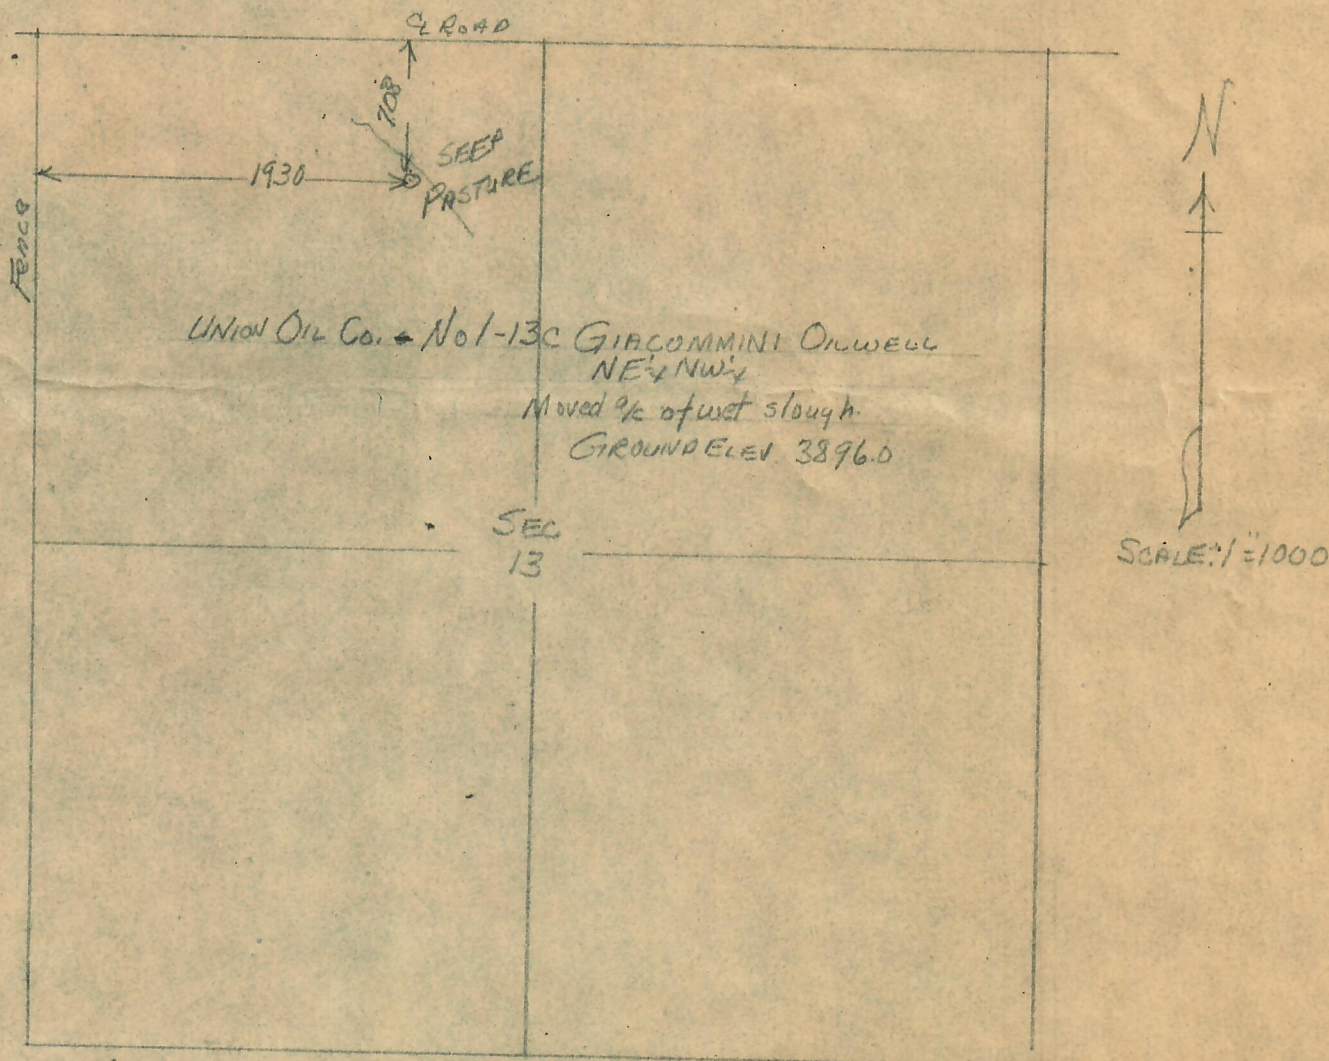 ℄ ROAD
708
SEEP
PASTURE
1930
Fence
N
UNION OIL Co. - No 1-13C GIACOMMINI OILWELL
NE¼ NW¼
Moved a/c of wet slough.
GROUND ELEV 3896.0
SEC
13
SCALE: 1"=1000